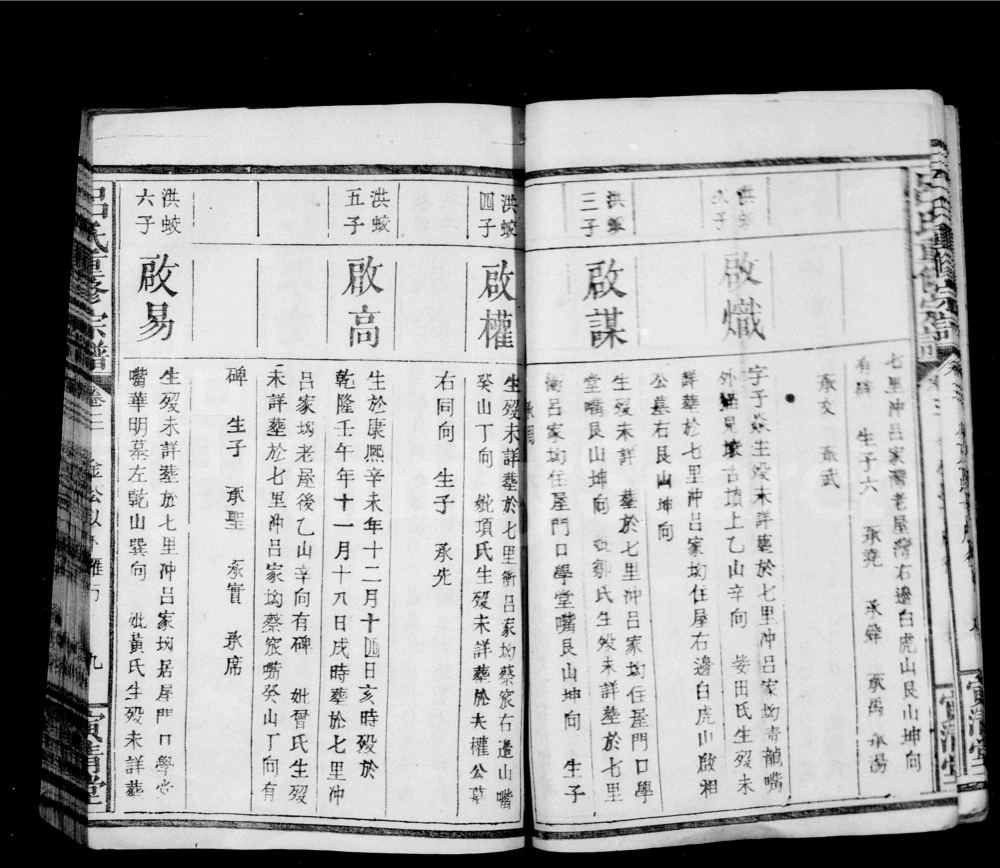 七里冲呂家灣老屋灣右邊白虎山艮山坤向
有碑 生子六 承堯 承舜 承禹 承湯
承文 承武
洪蛟
啟熾
字子 生歿未詳葬於七里冲呂家坳青龍嘴
古墳上乙山辛向 娶田氏生歿未
詳葬於七里冲呂家坳住屋右邊白虎山啟相
公墓右艮山坤向
洪蛟
三子
啟謀
生歿未詳 葬於七里冲呂家坳住屋門口學
堂嘴艮山坤向 妣鄒氏生歿未詳葬於七里
衝呂家坳住屋門口學堂嘴艮山坤向 生子
洪蛟
四子
啟權
生歿未詳葬於七里衝呂家坳蔡家右邊山嘴
癸山丁向 妣項氏生歿未詳葬於夫權公墓
右同向 生子 承先
洪蛟
五子
啟高
生於康熈辛未年十二月十四日亥時歿於
乾隆壬午年十一月十八日戌時葬於七里冲
呂家坳老屋後乙山辛向有碑 妣晉氏生歿
未詳葬於七里冲呂家坳蔡家嘴癸山丁向有
碑 生子 承聖 承實 承席
洪蛟
六子
啟易
生歿未詳葬於七里冲呂家坳居屋門口學堂
嘴華明墓左乾山巽向 妣黃氏生歿未詳葬
呂氏重修宗譜 卷二 九